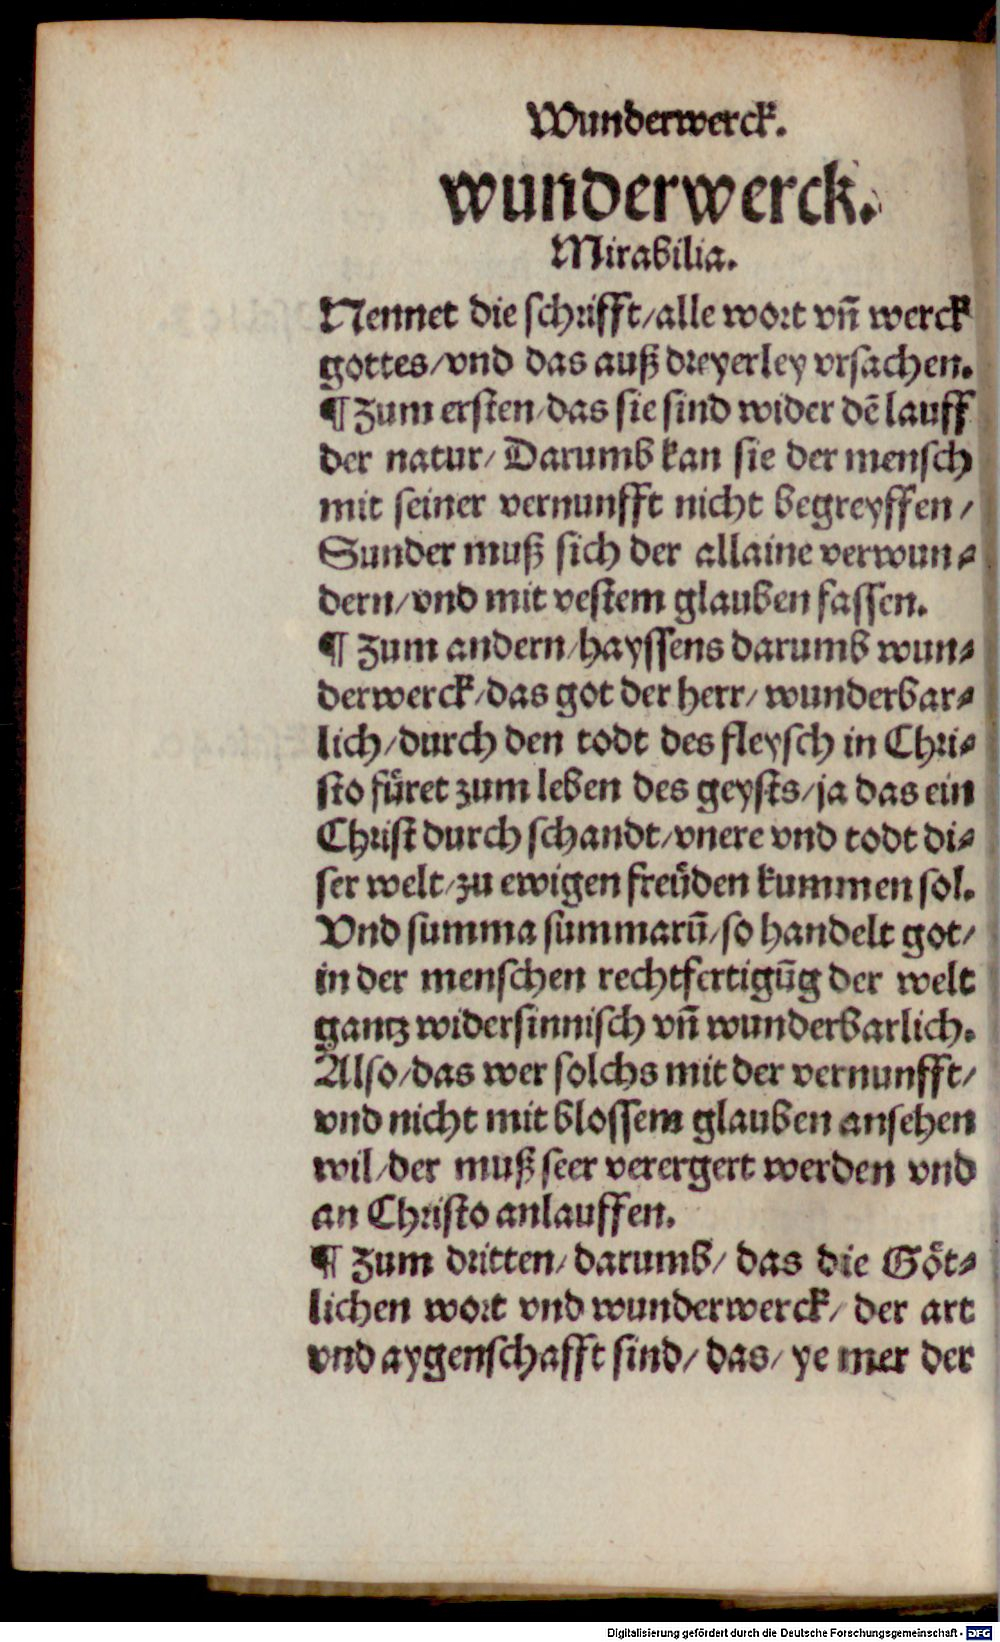 Wunderwerck.
wunderwerck.
Mirabilia.
Nennet die schrifft/alle wort vn̄ werck
gottes/vnd das auß dreyerley vrsachen.
¶ Zum ersten/das sie sind wider dē lauff
der natur/ Darumb kan sie der mensch
mit seiner vernunfft nicht begreyffen/
Sunder muß sich der allaine verwun⸗
dern/vnd mit vestem glauben fassen.
¶ Zum andern/hayssens darumb wun⸗
derwerck/das got der herr/ wunderbar⸗
lich/durch den todt des fleysch in Chri⸗
sto fůret zum leben des geysts/ja das ein
Christ durch schandt/vnere vnd todt di⸗
ser welt/zu ewigen freüden kummen sol.
Vnd summa summarū/so handelt got/
in der menschen rechtfertigūg der welt
gantz widersinnisch vn̄ wunderbarlich.
Also/das wer solchs mit der vernunfft/
vnd nicht mit blossem glauben ansehen
wil/der muß seer verergert werden vnd
an Christo anlauffen.
¶ Zum dritten/ darumb/ das die Göt⸗
lichen wort vnd wunderwerck/ der art
vnd aygenschafft sind/ das/ ye mer der
Digitalisierung gefördert durch die Deutsche Forschungsgemeinschaft - DFG